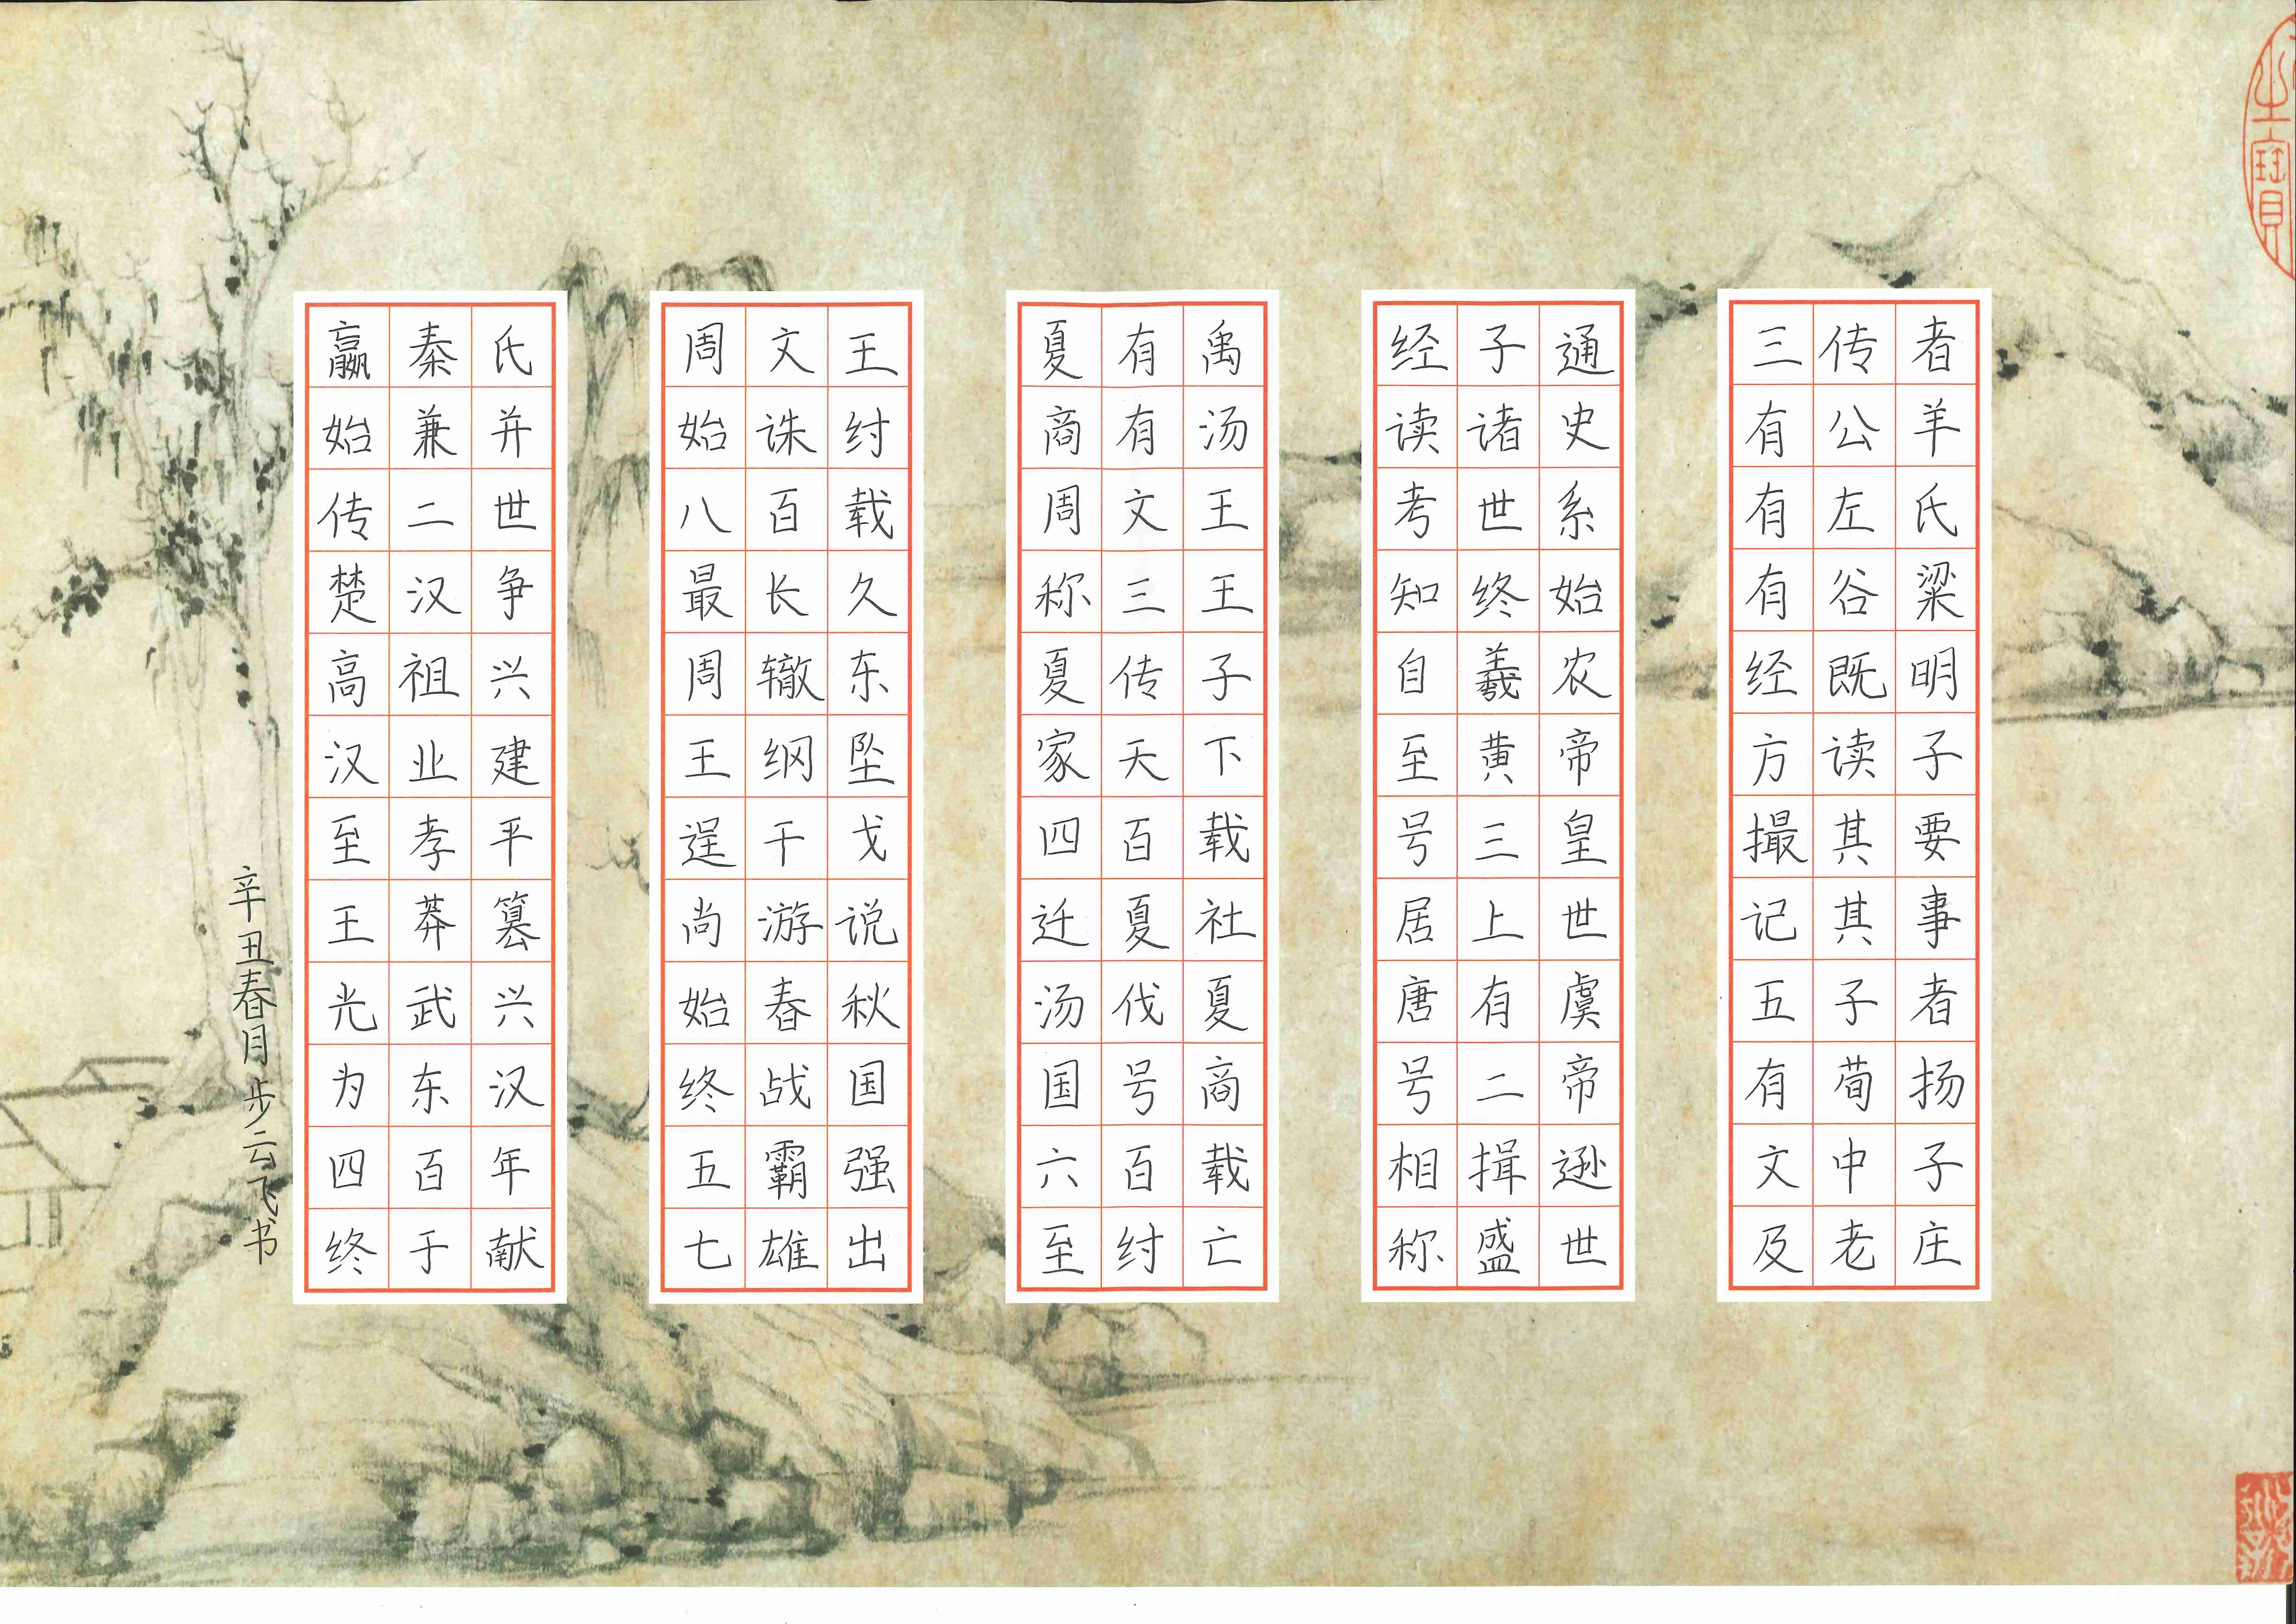 三传者
有公羊
有左氏
有谷粱
经既明
方读子
撮其要
记其事
五子者
有荀扬
文中子
及老庄
经子通
读诸史
考世系
知终始
自羲农
至黄帝
号三皇
居上世
唐有虞
号二帝
相揖逊
称盛世
夏有禹
商有汤
周文王
称三王
夏传子
家天下
四百载
迁夏社
汤伐夏
国号商
六百载
至纣亡
周文王
始诛纣
八百载
最长久
周辙东
王纲坠
逞干戈
尚游说
始春秋
终战国
五霸强
七雄出
嬴秦氏
始兼并
传二世
楚汉争
高祖兴
汉业建
至孝平
王莽篡
光武兴
为东汉
四百年
终于献
辛丑春月步云飞书